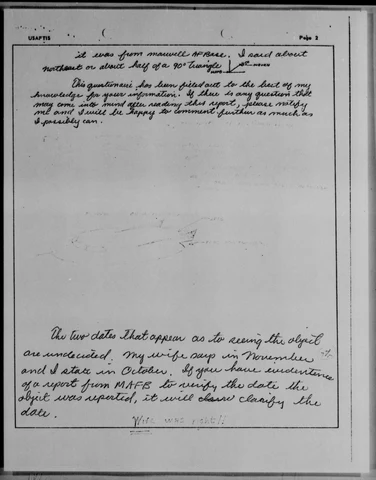 USAFTIS Page 2
it was from maxwell AFBase. I said about
northeast or about half of a 90° triangle
This questionaire has been filled out to the best of my
knowledge for your information. If there is any question that
may come into mind after reading this report, please notify
me and I will be happy to comment further as much as
I possibly can.
The two dates that appear as to seeing the object
are undecided. My wife says in November
and I state in October. If you have evidentence
of a report from MAFB to verify the date the
object was reported, it will clarify the
date.
Wife was right!!